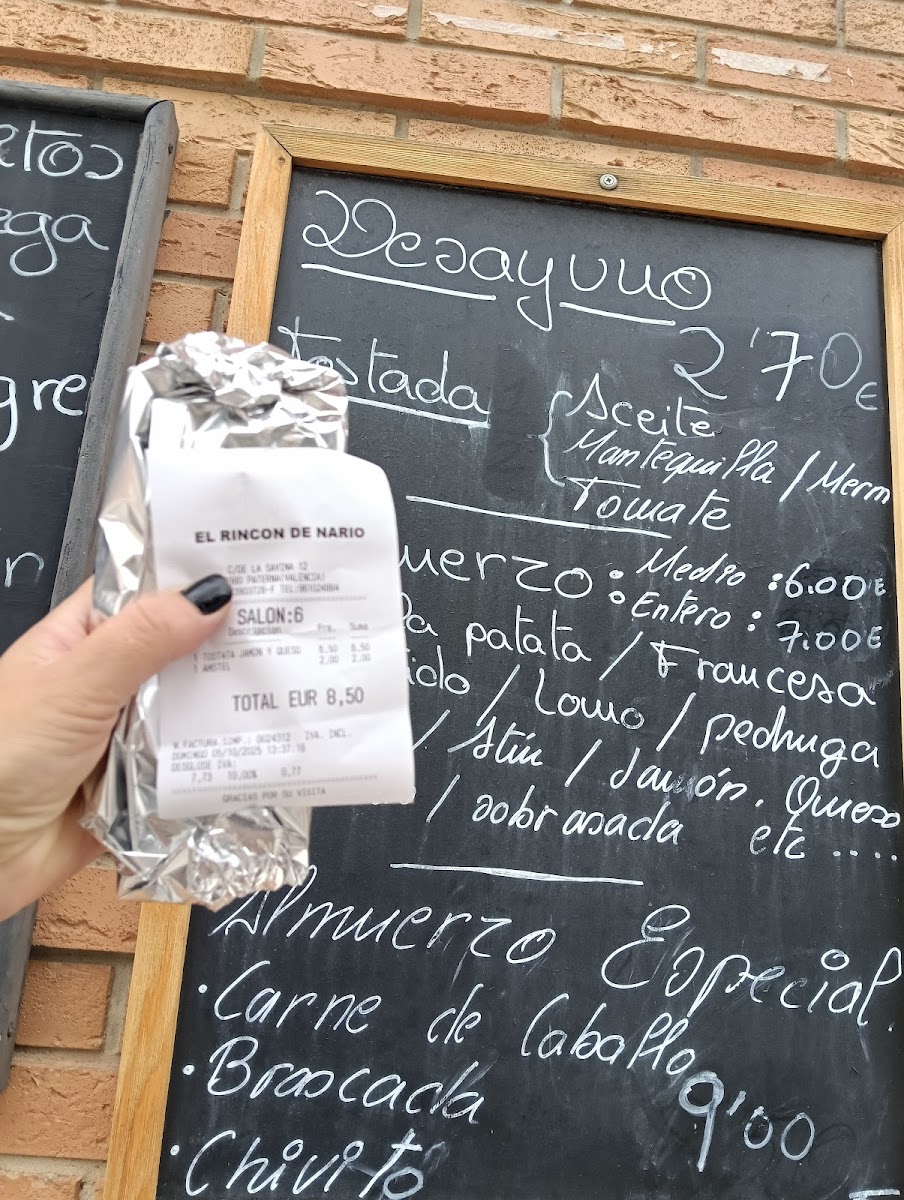 etos
ega
gre
n
Desayuno
2'70€
Tostada
Aceite
Mantequilla / Merm
Tomate
muerzo: Medio : 6.00€
Entero : 7.00€
patata / Francesa
/ Lomo / pechuga
/ Atún / Jamón. Queso
/ sobrasada etc ....
Almuerzo Especial.
· Carne de Caballo
· Brascada
9'00
· Chivito
EL RINCON DE NARIO
C/DE LA SAVINA 12
PATERNA(VALENCIA)
SALON:6
Descripcion Pre. Suma
1 TOSTATA JAMON Y QUESO 6,50 6,50
1 AMSTEL 2,00 2,00
TOTAL EUR 8,50
N.FACTURA SIMP.: 0024312 IVA. INCL.
DOMINGO 05/10/2025 13:37:16
DESGLOSE IVA:
7,73 10,00% 0,77
GRACIAS POR SU VISITA